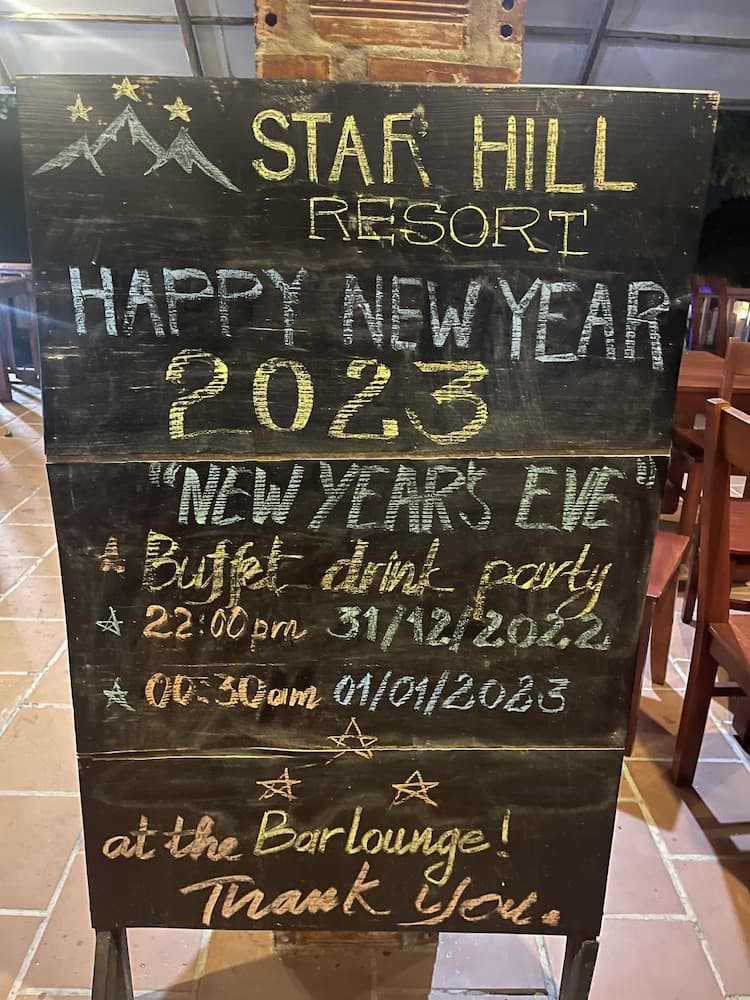 STAR HILL
RESORT
HAPPY NEW YEAR
2023
"NEW YEAR'S EVE"
Buffet drink party
22:00pm 31/12/2022
00:30am 01/01/2023
at the Bar lounge!
Thank you.